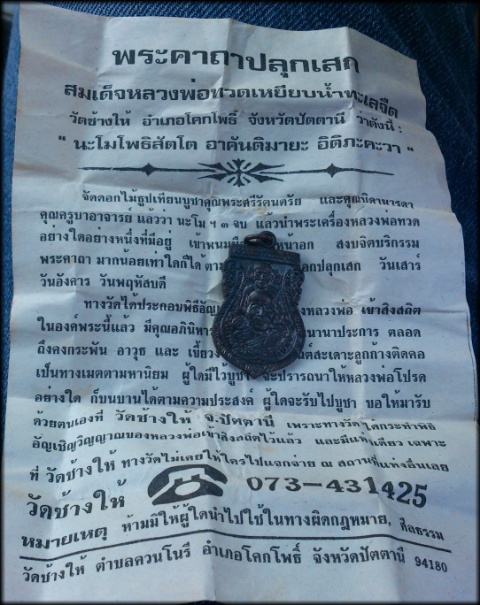 พระคาถาปลุกเสก
สมเด็จหลวงพ่อทวดเหยียบน้ำทะเลจืด
วัดช้างให้ อำเภอโคกโพธิ์ จังหวัดปัตตานี ว่าดังนี้ :
" นะโมโพธิสัตโต อาคันติมายะ อิติภะคะวา "
จัดดอกไม้ธูปเทียนบูชาคุณพระศรีรัตนตรัย และคุณบิดามารดา
คุณครูบาอาจารย์ แล้วว่า นะโม ฯ ๓ จบ แล้วนำพระเครื่องหลวงพ่อทวด
อย่างใดอย่างหนึ่งที่มีอยู่ เข้าพนมมือ หน้าอก สงบจิตบริกรรม
พระคาถา มากน้อยเท่าใดก็ได้ ปลุกเสก วันเสาร์
วันอังคาร วันพฤหัสบดี
ทางวัดได้ประกอบพิธีอัญ หลวงพ่อ เข้าสิงสถิต
ในองค์พระนี้แล้ว มีคุณอภินิหาร นานาประการ ตลอด
ถึงคงกระพัน อาวุธ และ เขี้ยว สะเดาะลูกก้างติดคอ
เป็นทางเมตตามหานิยม ผู้ใดมีไว้บูชา จะปรารถนาให้หลวงพ่อโปรด
อย่างใด ก็บนบานได้ตามความประสงค์ ผู้ใดจะรับไปบูชา ขอให้มารับ
ด้วยตนเองที่ วัดช้างให้ จ.ปัตตานี เพราะทางวัดได้กระทำพิธี
อัญเชิญวิญญาณของหลวงพ่อเข้าสิงสถิตไว้แล้ว และมีแห่งเดียว เฉพาะ
ที่ วัดช้างให้ ทางวัดไม่เคยให้ใครไปแจกจ่าย ณ สถานที่แห่งอื่นเลย
วัดช้างให้ 073-431425
หมายเหตุ ห้ามมิให้ผู้ใดนำไปใช้ในทางผิดกฎหมาย, ศีลธรรม
วัดช้างให้ ตำบลควนโนรี อำเภอโคกโพธิ์ จังหวัดปัตตานี 94180